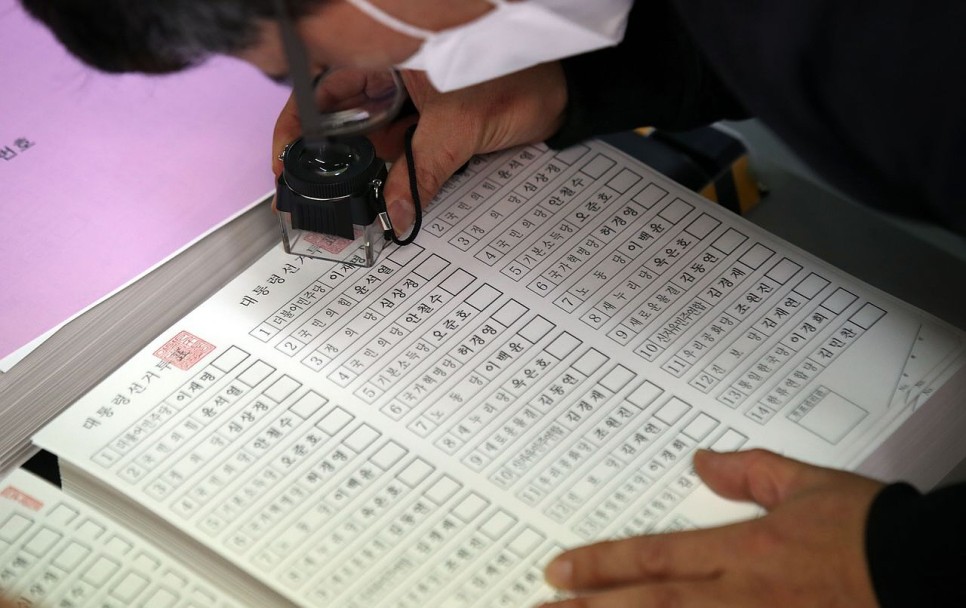 번호
2 국민의힘 윤석열
3 정의당 심상정
4 국민의당 안철수
5 기본소득당 오준호
6 국가혁명당 허경영
7 노동당 이백윤
8 새누리당 옥은호
9 새로운물결 김동연
10 신자유민주연합 김경재
11 우리공화당 조원진
12 진보당 김재연
13 통일한국당 이경희
14 한류연합당 김민찬
대통령선거투
1 더불어민주당 이재명
2 국민의힘 윤석열
3 정의당 심상정
4 국민의당 안철수
5 기본소득당 오준호
6 국가혁명당 허경영
7 노동당 이백윤
8 새누리당 옥은호
9 새로운물결 김동연
10 신자유민주연합 김경재
11 우리공화당 조원진
12 진보당 김재연
13 통일한국당 이경희
대통령선거투
1 더불어민주당 이재명
2 국민의힘 윤석열
3 정의당 심상정
4 국민의당 안철수
5 기본소득당 오준호
6 국가혁명당 허경영
7 노동당 이백윤
8 새누리당 옥은호
김동연
김경재
조원진